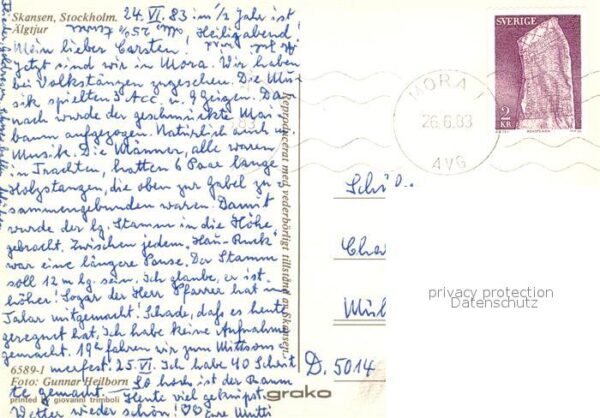 Skansen, Stockholm.
Älgtjur
24. VI. 83 im ½ Jahr ist
Heiligabend!
Mein lieber Carsten!
jetzt sind wir in Mora. Wir haben
bei Volkstänzen zugesehen. Die Mu-
sik spielten 3 Acc. u. 9 Geigen. Da-
nach wurde der geschmückte Mai-
baum aufgezogen. Natürlich auch m.
Musik. Die Männer, alle waren
in Trachten, hatten 6 Paar lange
Holzstangen, die oben zur Gabel zu-
sammengebunden waren. Damit
wurde der lg. Stamm in die Höhe
gebracht. Zwischen jedem "Hau-Ruck"
war eine längere Pause. Der Stamm
soll 12 m lg. sein. Ich glaube, er ist
höher! Sogar der Herr Pfarrer hat im
Talar mitgemacht. Schade, daß es heute
geregnet hat, ich habe keine Aufnahme
gemacht. 19h fahren wir zum Mittsom-
merfest. 25. VI. Ich habe 40 Schritt
te gemacht. So hoch ist der Baum
Heute viel geknipst.
Wetter wieder schön! Eure Mutti
6589-1
Foto: Gunnar Heilborn
printed by giovanni trimboli
grako
Reproducerat med vederbörligt tillstånd av Skansen.
SVERIGE
2
KR
MORA 1
26.6.83
AVG
Schü
Cha
Mül
D. 5014
privacy protection
Datenschutz